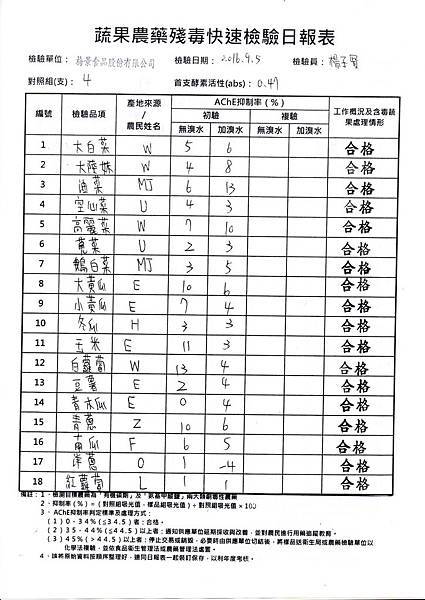 蔬果農藥殘毒快速檢驗日報表
檢驗單位： 裕景食品股份有限公司 檢驗日期：2016.9.5 檢驗員：
對照組(支)： 4 首支酵素活性(abs)： 0.47
編號 檢驗品項 產地來源/農民姓名 AChE抑制率 ( % ) 工作概況及含毒蔬果處理情形
初驗 複驗
無溴水 加溴水 無溴水 加溴水
1 大白菜 W 5 6 合格
2 大陸妹 W 4 8 合格
3 油菜 MJ 6 13 合格
4 空心菜 U 4 3 合格
5 高麗菜 W 7 10 合格
6 莧菜 U 2 3 合格
7 鵝白菜 MJ 3 5 合格
8 大黃瓜 E 10 6 合格
9 小黃瓜 E 7 4 合格
10 冬瓜 H 3 3 合格
11 玉米 E 11 3 合格
12 白蘿蔔 W 13 4 合格
13 豆薯 E 2 4 合格
14 青木瓜 E 0 4 合格
15 青蔥 Z 10 6 合格
16 南瓜 F 6 5 合格
17 洋蔥 O 1 -4 合格
18 紅蘿蔔 L 1 1 合格
備註：1、檢測目標農藥為「有機磷劑」及「氨基甲酸鹽」兩大類劇毒性農藥
2、抑制率(%)=(對照組吸光值-樣品組吸光值)÷對照組吸光值×100
3、AChE抑制率判定標準及處理方式：
(1)0-34%(≦34.5)者：合格。
(2)35-44%(≦44.5)以上者：通知供應單位延期採收與改善，並對農民進行用藥追蹤教育。
(3)45%(>44.5)以上者：停止交易或銷毀，必要時由供應單位切結後，將樣品送衛生局或農藥檢驗單位以
化學法複驗，並依食品衛生管理法或農藥管理法處置。
4、請將原始資料按順序整理好，連同日報表一起裝訂保存，以利年度考核。